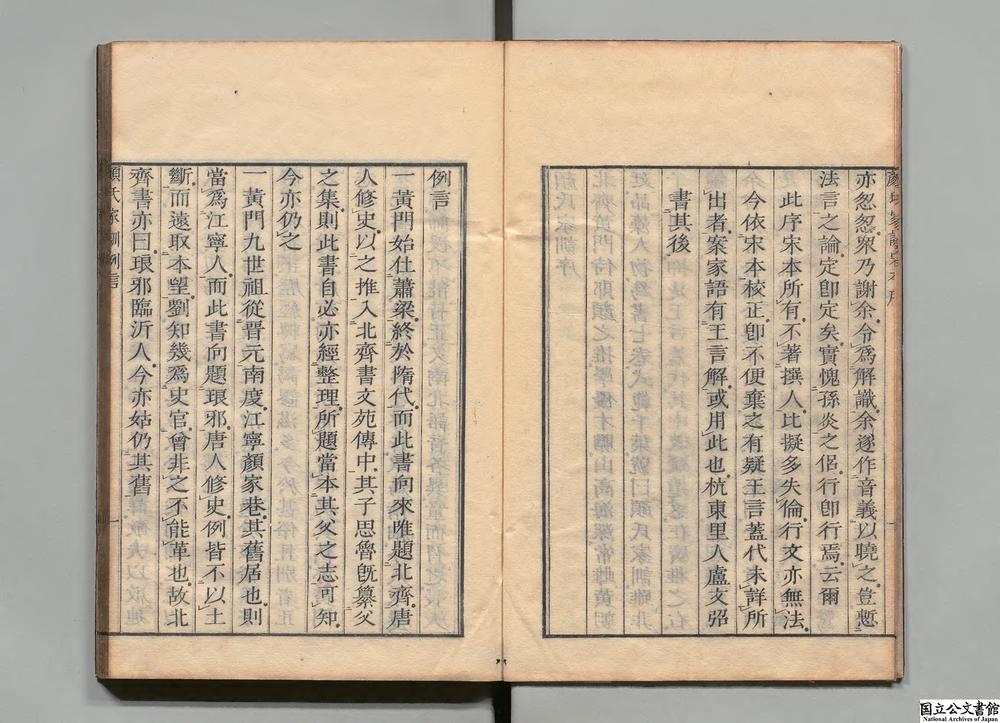 亦怱怱衆乃謝余令為解識余遂作音義以曉之豈慙
法言之論定卽定矣實愧孫炎之侶行卽行焉云爾
此序宋本所有不著撰人比擬多失倫行文亦無法
今依宋本校正卽不便棄之有疑王言蓋代未詳所
出者案家語有王言解或用此也杭東里人盧文弨
書其後
例言
一黃門始仕蕭梁終於隋代而此書向來唯題北齊唐
人修史以之推入北齊書文苑傳中其子思魯旣纂父
之集則此書自必亦經整理所題當本其父之志可知
今亦仍之
一黃門九世祖從晉元南度江寧顏家巷其舊居也則
當為江寧人而此書向題琅邪唐人修史例皆不以土
斷而遠取本望劉知幾為史官曾非之不能革也故北
齊書亦曰琅邪臨沂人今亦姑仍其舊
顏氏家訓例言
一
国立公文書館
National Archives of Japan